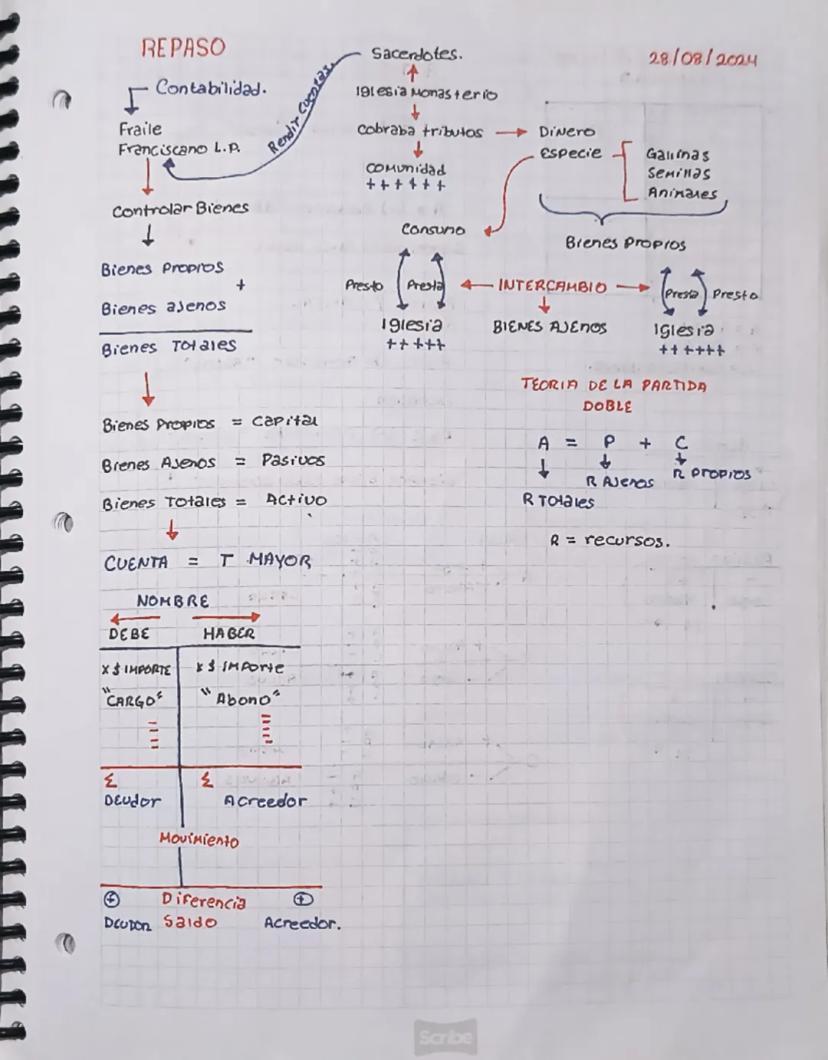 REPASO
28/08/2024
Contabilidad.
Fraile
Franciscano L.P.
Controlar Bienes
Bienes Propios
+
Bienes ajenos
Bienes Totales
Bienes Propios = Capital
Bienes Ajenos = Pasivos
Bienes Totales = Activo
CUENTA = T MAYOR
NOMBRE
DEBE HABER
X $ IMPORTE X $ IMPorte
"CARGO" "Abono"
Σ Σ
Deudor Acreedor
Movimiento
+ Diferencia +
Deudor Saldo Acreedor.
Rendir Cuentas
Sacerdotes.
Iglesia Monasterio
Cobraba tributos Dinero
especie
Gallinas
Semillas
Animales
Comunidad
++++++
Consumo
Bienes Propios
Presto Presta INTERCAMBIO Presta Presto
Iglesia BIENES AJENOS Iglesia
+++++ ++++++
TEORIA DE LA PARTIDA
DOBLE
A = P + C
R Ajenos R Propios
R Totales
R = recursos.
Scribe